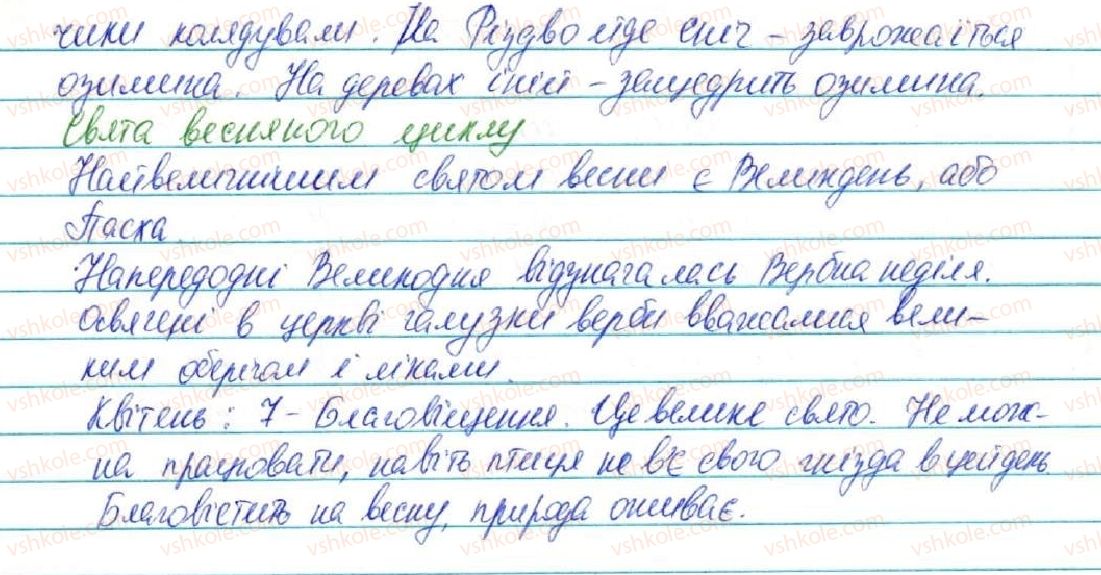 чики колядували. На Різдво йде сніг – заврожаїться
озимина. На деревах іній – защедрить озимина.
Свята весняного циклу
Найвеличнішим святом весни є Великдень, або
Пасха
Напередодні Великодня відзначалась Вербна неділя.
Освячені в церкві галузки верби вважалися вели-
ким оберегом і ліками.
Квітень: 7 – Благовіщення. Це велике свято. Не мож-
на працювати, навіть птиця не в'є свого гнізда в цей день
Благовістить на весну, природа оживає.